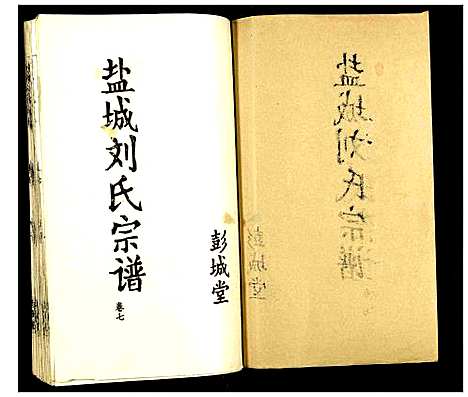 盐城刘氏宗谱
卷七
彭城堂
盐城刘氏宗谱
彭城堂